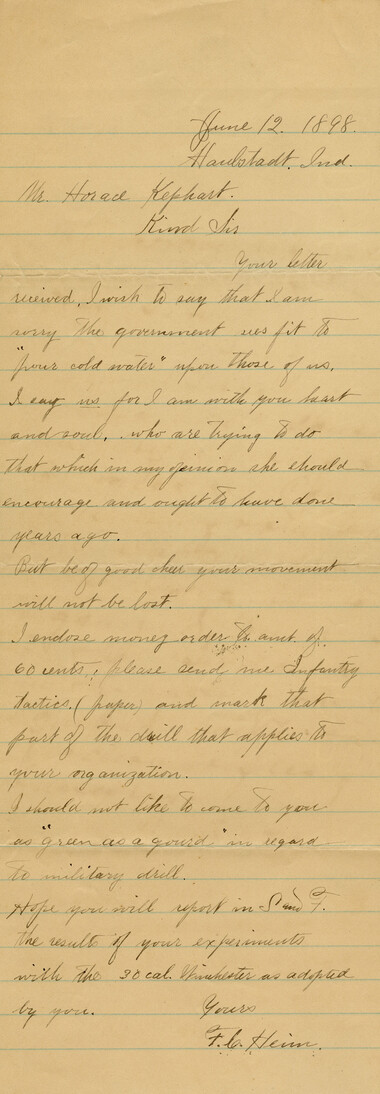 June 12. 1898.
Haulstadt. Ind.
Mr. Horace Kephart.
Kind Sir
Your letter
recieved, I wish to say that I am
sorry the government sees fit to
"pour cold water" upon those of us,
I say us for I am with you heart
and soul, who are trying to do
that which in my opinion she should
encourage and ought to have done
years ago.
But be of good cheer your movement
will not be lost.
I enclose money order to amt of
60 cents; please send me Infantry
Tactics (paper) and mark that
part of the drill that applies to
your organization.
I should not like to come to you
as "green as a gourd" in regard
to military drill.
Hope you will report in S and F.
the result of your experiments
with the 30 cal. Winchester as adopted
by you. Yours
F. C. Heim.